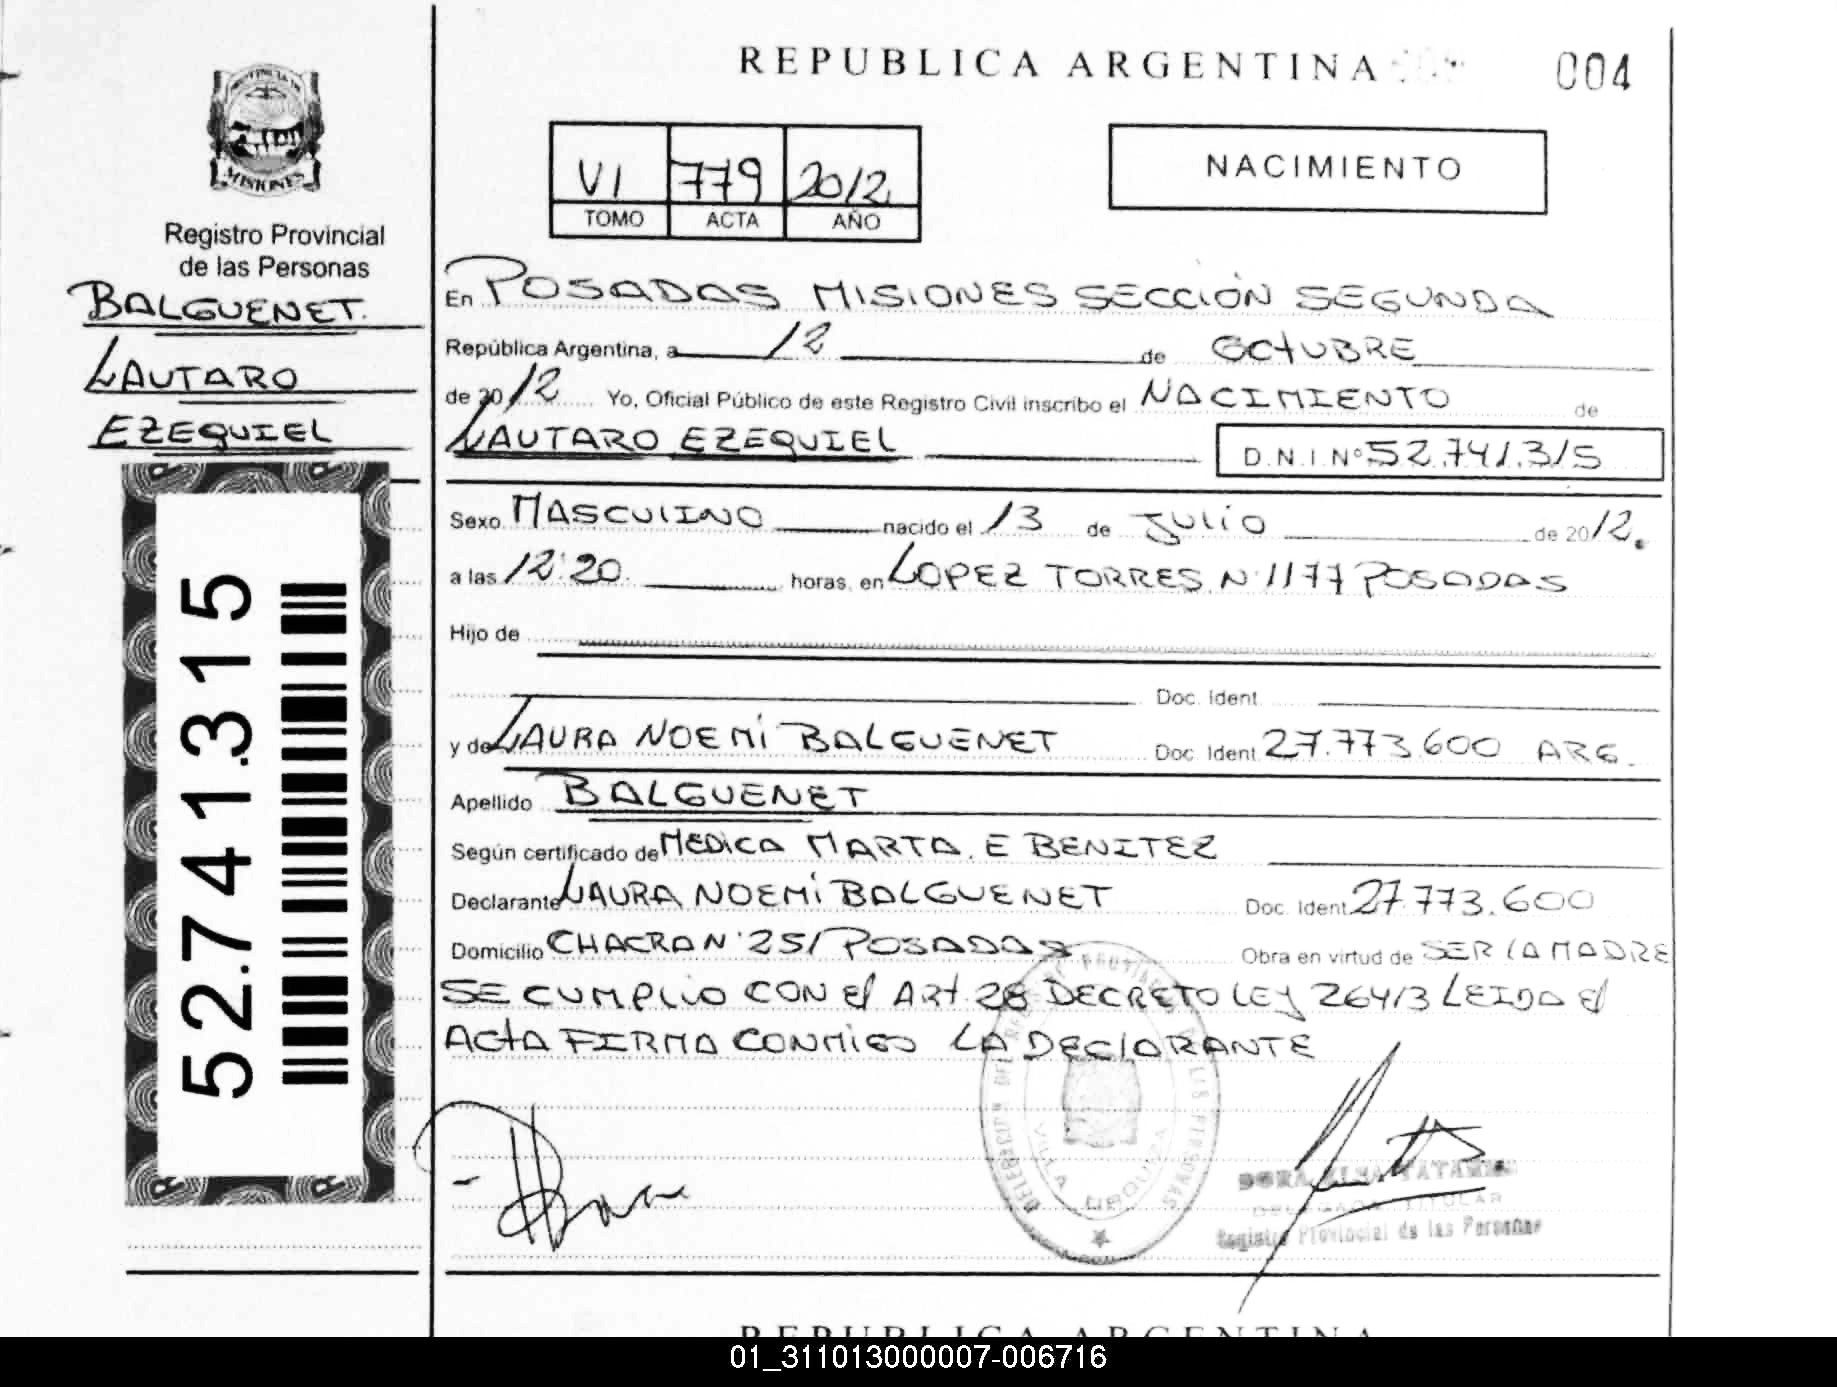 REPUBLICA ARGENTINA
004
MISIONES
Registro Provincial
de las Personas
BALGUENET.
LAUTARO
EZEQUIEL
52.741.315
VI 779 2012
TOMO ACTA AÑO
NACIMIENTO
En POSADAS MISIONES SECCIÓN SEGUNDA
República Argentina, a 12 de OCTUBRE
de 2012 Yo, Oficial Público de este Registro Civil inscribo el NACIMIENTO de
LAUTARO EZEQUIEL D.N.I.Nº 52.741.315
Sexo MASCULINO nacido el 13 de JULIO de 2012.
a las 12:20 horas, en LOPEZ TORRES Nº 1177 POSADAS
Hijo de
Doc. Ident.
y de LAURA NOEMÍ BALGUENET Doc. Ident. 27.773.600 ARG.
Apellido BALGUENET
Según certificado de MEDICA MARTA. E BENITEZ
Declarante LAURA NOEMÍ BALGUENET Doc. Ident. 27.773.600
Domicilio CHACRA Nº 251 POSADAS Obra en virtud de SER LA MADRE
SE CUMPLIO CON El ART. 28 DECRETO LEY 26413 LEIDA El
ACTA FIRMA CONMIGO LA DEClARANTE
VILLA URQUIZA
DORA
DELEGADA TITULAR
Registro Provincial de las Personas
REPUBLICA ARGENTINA
01_311013000007-006716